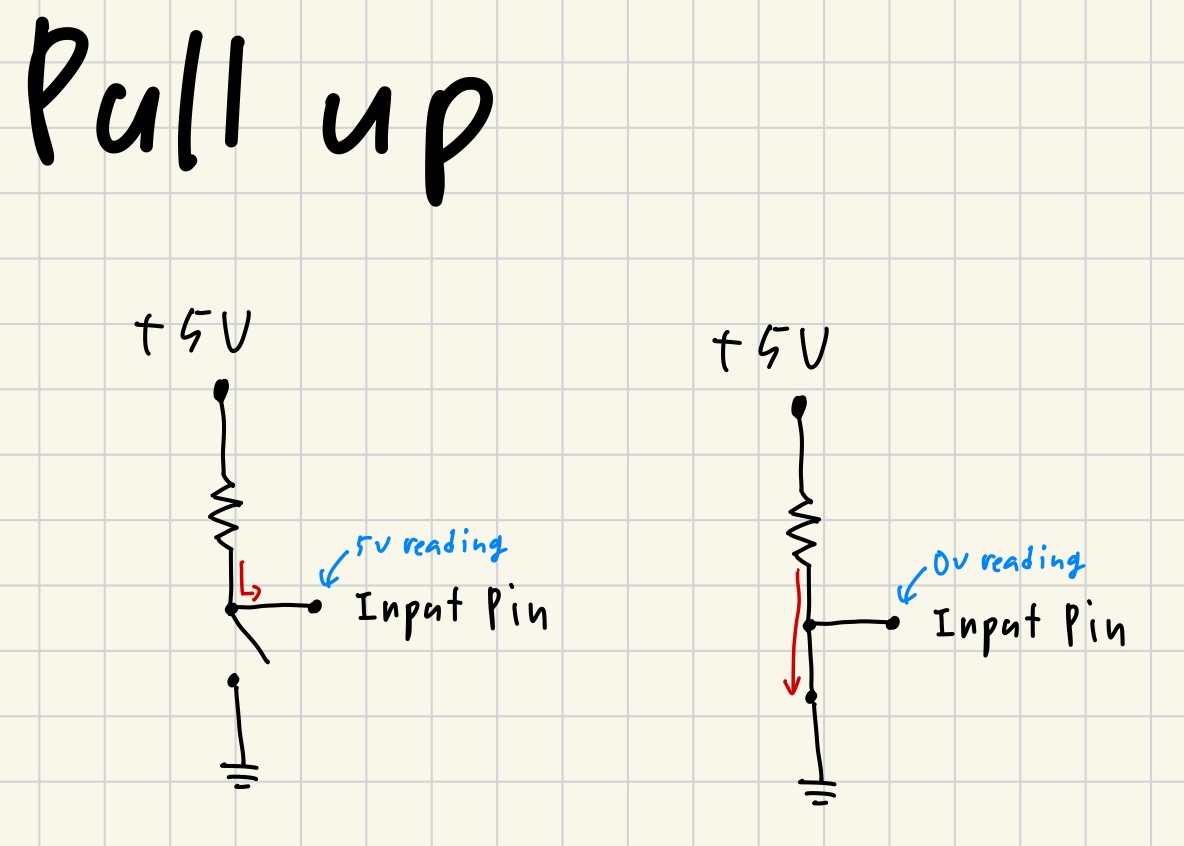 Pull up
+5V
5v reading
Input Pin
+5V
0v reading
Input Pin